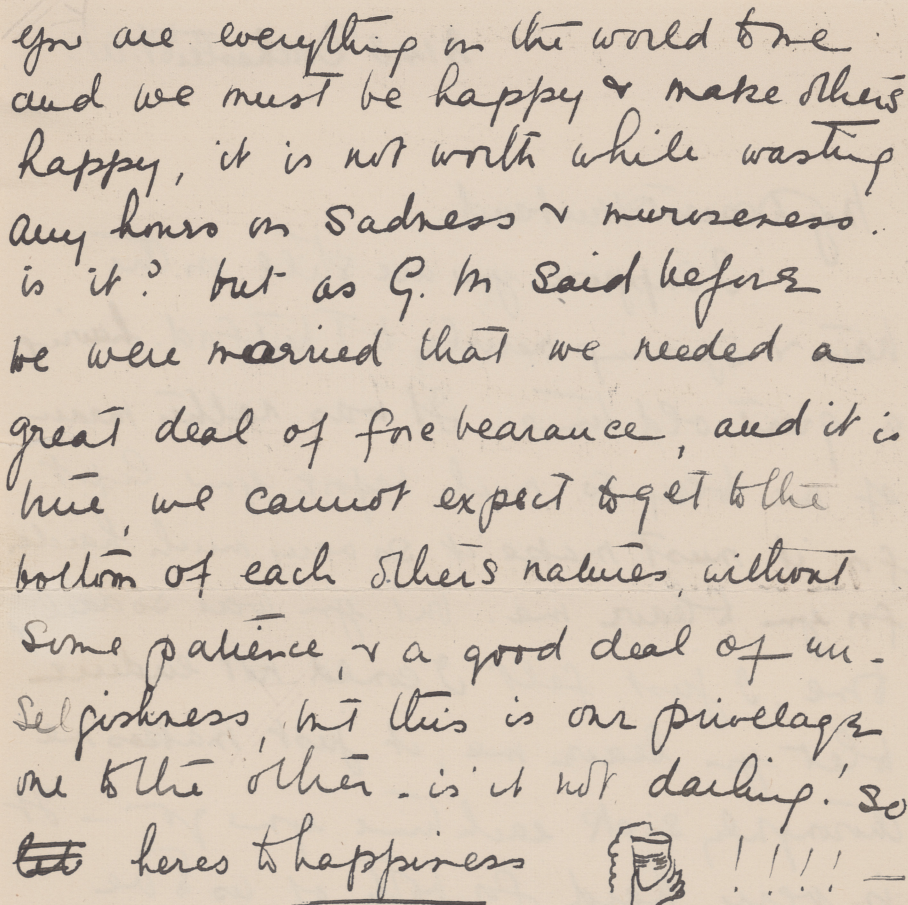 you are everything in the world to me
and we must be happy & make others
happy, it is not worth while wasting
any hours on sadness & muroseness.
is it? but as G. M said before
we were married that we needed a
great deal of forebearance, and it is
true, we cannot expect to get to the
bottom of each others natures, without
some patience, & a good deal of un-
selfishness, but this is our privelage
one to the other - is it not darling! so
heres to happiness !!!! —